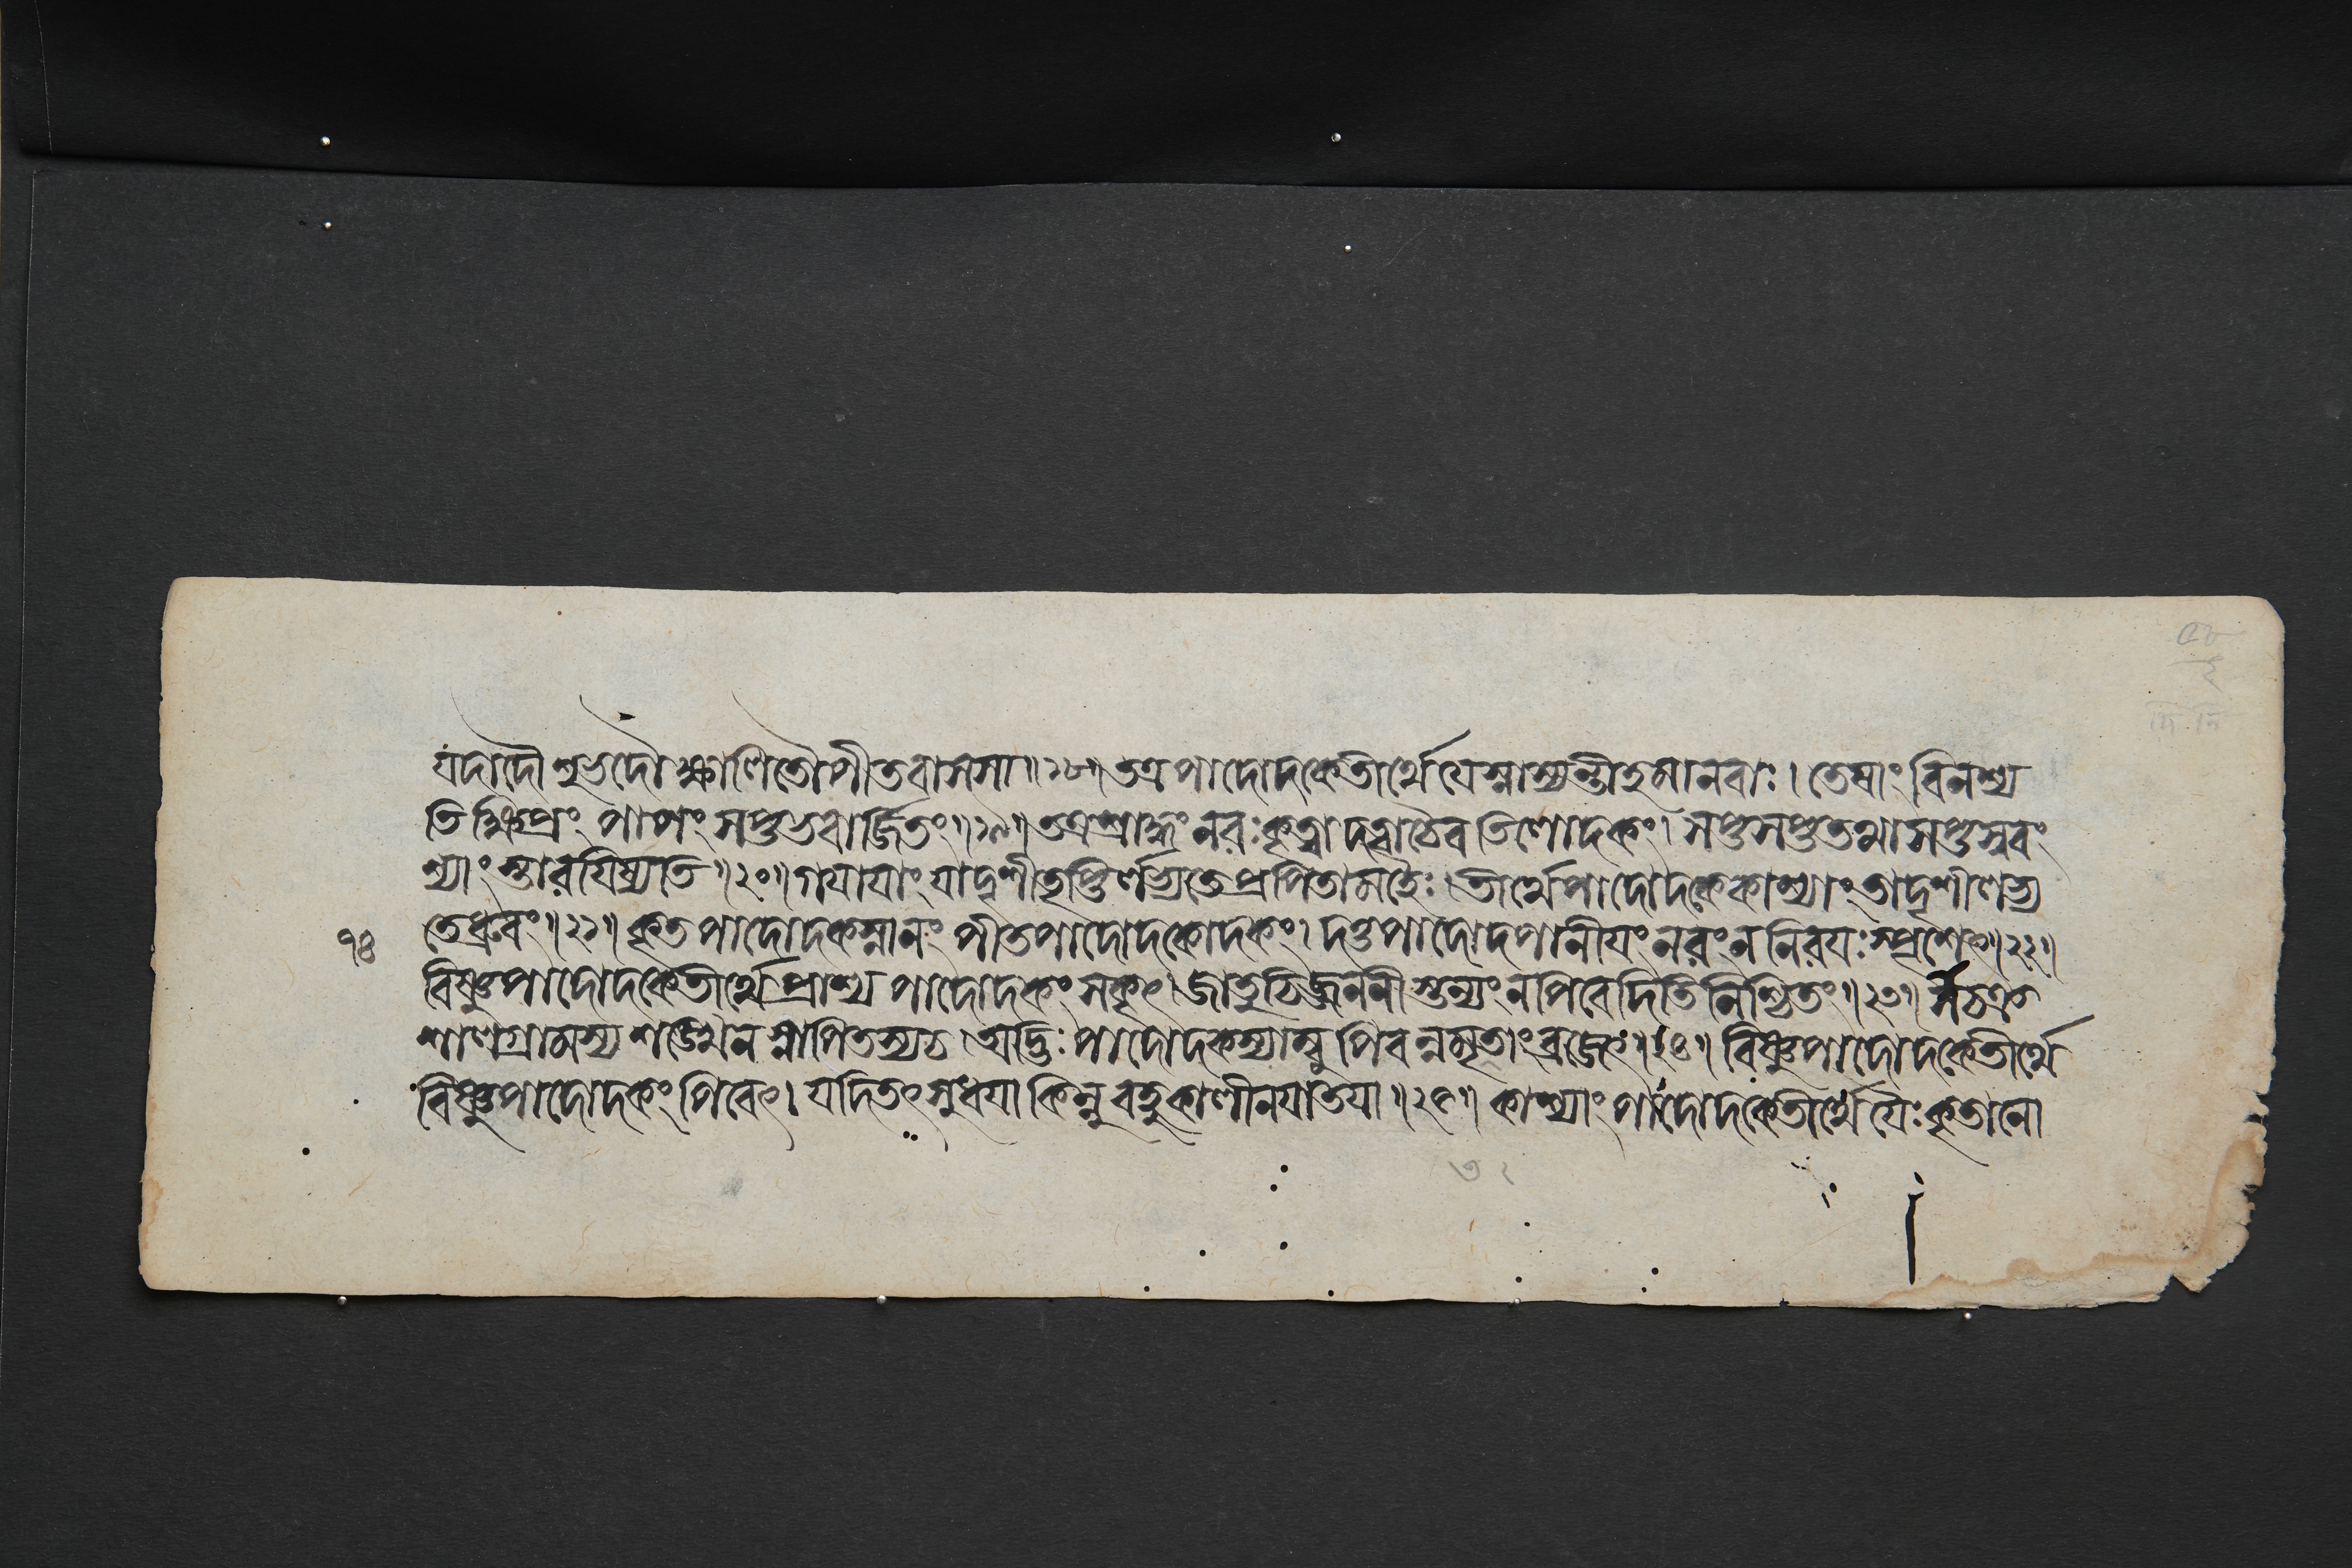 যদাদৌ শুভদৌ ক্ষালিতৌ পীতবাসসা॥১৮॥ তত্র পাদোদকে তীর্থে যে স্নাস্যন্তীহ মানবাঃ। তেষাং বিনশ্য
তি ক্ষিপ্রং পাপং সপ্তভবার্জ্জিতং॥১৯॥ তত্র শ্রাদ্ধং নরঃ কৃত্বা দত্বা চৈব তিলোদকং। সপ্ত সপ্ত তথা সপ্ত স্ববং
শ্যাংস্তারযিষ্যতি॥২০॥ গযাযাং যাদৃশী তৃপ্তির্লভ্যতে প্রপিতামহৈঃ। তীর্থে পাদোদকে কাশ্যাং তাদৃশী লভ্য
৭৪ তে ধ্রুবং॥২১॥ কৃতপাদোদকস্নানং পীতপাদোদকোদকং। দত্তপাদোদপানীযং নরং ন নিরযঃ স্পৃশেৎ॥২২॥
বিষ্ণুপাদোদকে তীর্থে প্রাশ্য পাদোদকং সকৃৎ। জাতুচিজ্জননীস্তন্যং ন পিবেদিতি নিশ্চিতং॥২৩॥ সচক্র
শালগ্রামস্য শঙ্খেন স্নাপিতস্য চ। অদ্ভিঃ পাদোদকস্যাম্বু পিবন্নমৃতাং ব্রজেৎ॥২৪॥ বিষ্ণুপাদোদকে তীর্থে
বিষ্ণুপাদোদকং পিবেৎ। যদি তৎ সুধযা কিন্নু বহুকালীনযা তযা॥২৫॥ কাশ্যাং পাদোদকে তীর্থে যৈঃ কৃতা নো